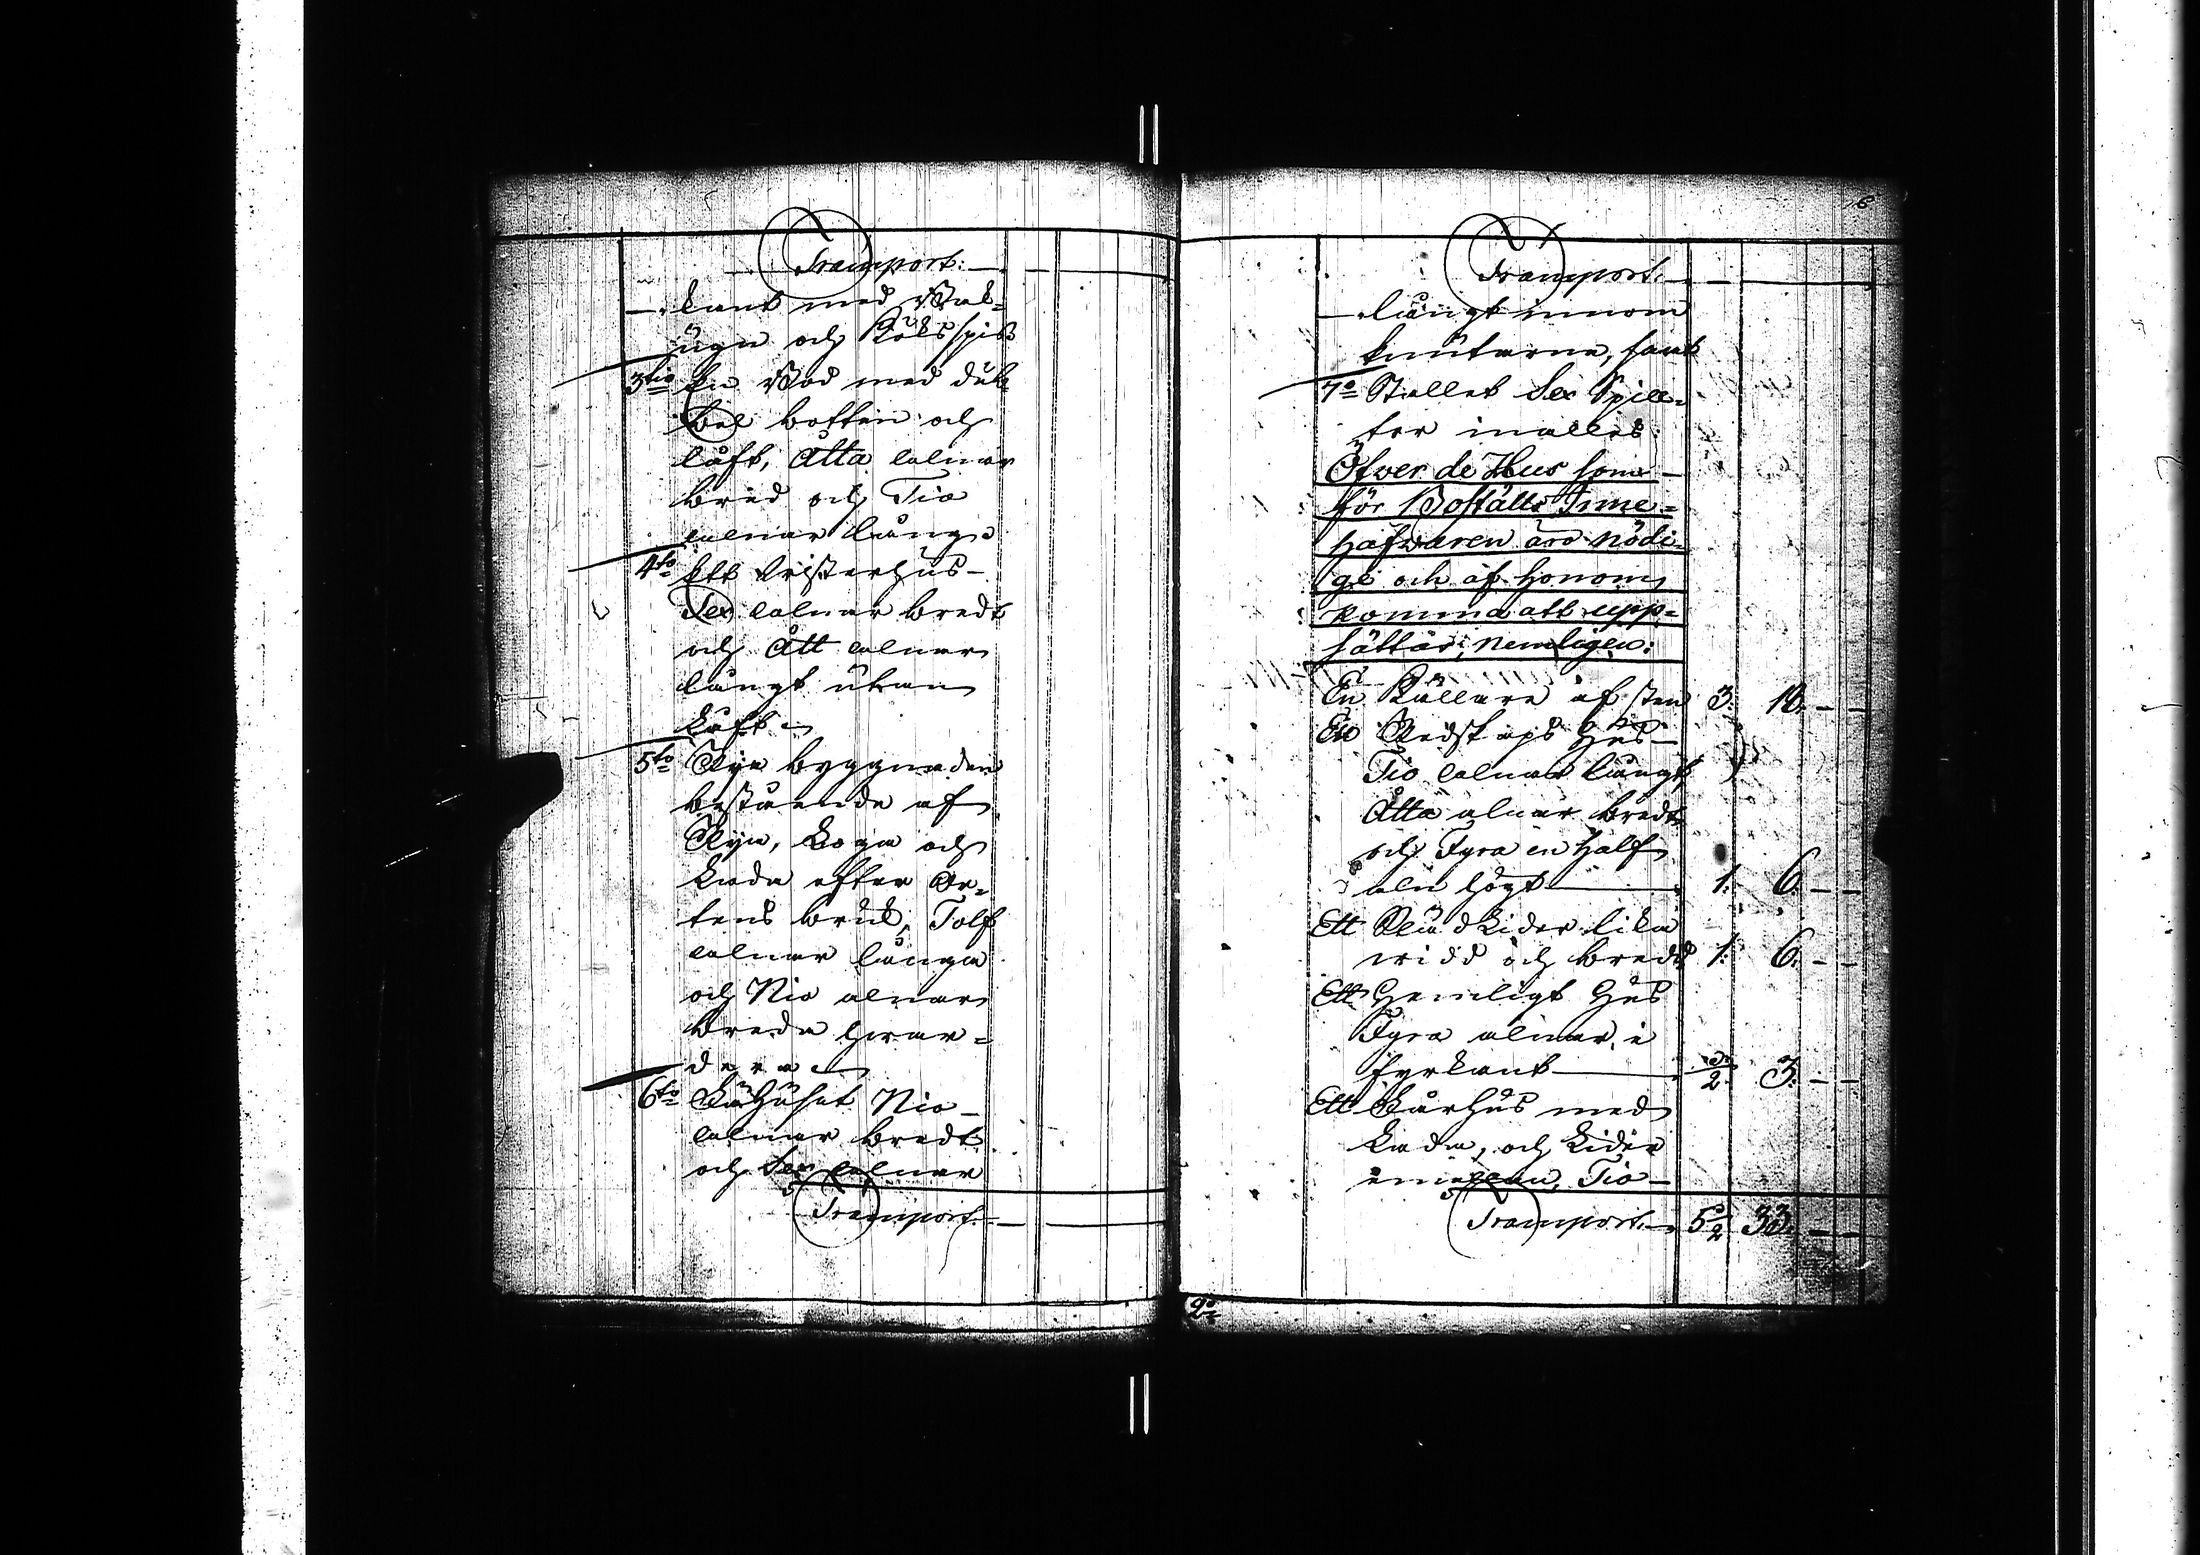 Transport.
kant med Bak-
ugn och Köksspis
3tio En Bod med dub
bel botten och
låft, Åtta alnar
bred och Tio
alnar lång
4to Ett Fristerhus
Sex alnar bredt
och Ått alnar
långt utan
låft
5to Rye byggnaden
bestående af
Rya, Loga och
Lada efter Or-
tens bruk, Tolf
alnar långa
och Nio alnar
breda hvar-
dera
6to Fähuset Nio
alnar bredt
och Sex alnar
Transport.
6
Transport.
långt innom
knutarne, samt
7o Stallet Sex Spill-
tor inalles
Öfver de Hus som
för Boställts Inne-
hafvaren äro nödi-
ge och af honom
komma att upp-
sättas; nemligen:
En Källare af sten 3. 18. - -
Ett Redskaps Hus
Tio alnar långt,
Åtta alnar bredt
och Fyra en half
aln högt 1: 6. - -
Ett Lider lika
vidd och bredd 1: 6. - -
Ett Hemligt Hus
Fyra alnar i
fyrkant 1/2 3. - -
Ett Fårhus med
Lada, och Lider
emellan, Tio
Transport. 5 1/2 33. - -
2o